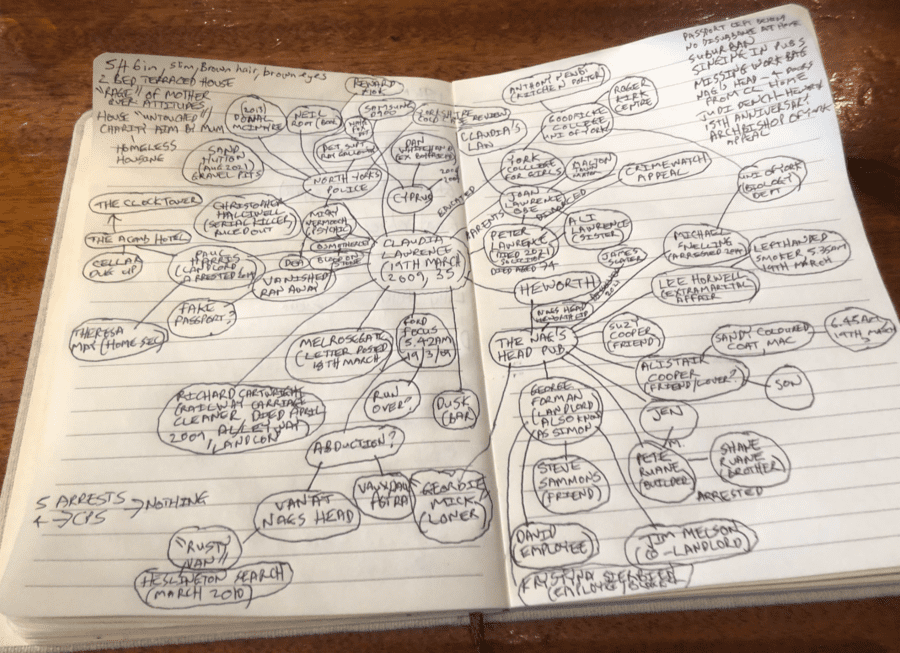 5ft 6in, slim, Brown hair, brown eyes
2 BED TERRACED HOUSE
"RAGE" OF MOTHER
OVER ATTITUDES,
HOUSE "UNTOUCHED"
CHARITY AIM BY MUM
HOMELESS
HOUSING
REWARD
2019
DONAL
MCINTYRE
NEIL
ROOT (BOOK)
SAMSUNG
D900
HAIR
DET SUPT
SAND
HUTTON
(AUG 2021)
GRAVEL PITS
NORTH YORKS
POLICE
DAN
CYPRUS
THE CLOCKTOWER
CHRISTOPHER
HALLIWELL
(SERIAL KILLER)
RULED OUT
PSYCHIC
THE ACOMB HOTEL
CELLAR
DUG UP
PAUL
HARRIS
(LANDLORD
VANISHED
RAN AWAY
CLAUDIA
LAWRENCE
19TH MARCH
2009, 35
FAKE
PASSPORT?
THERESA
MAY (HOME SEC)
MELROSEGATE
(LETTER POSTED
18TH MARCH
FORD
FOCUS
5.42AM
19/3/09
RICHARD CARTWRIGHT
(RAILWAY CARRIAGE
CLEANER DIED APRIL
2009, ALLEYWAY
LANDLORD
RUN
OVER?
DUSK
(BAR)
ABDUCTION?
5 ARRESTS → NOTHING
4 → CPS
VAN AT
NAGS HEAD
VAUXHALL
ASTRA
GEORDIE
MICK,
LONER
"RUSTY
VAN"
HESLINGTON SEARCH
(MARCH 2010)
PASSPORT LEFT BEHIND
NO DISTURBANCE AT HOME
SUBURBAN
SINGING IN PUBS
MISSING WORK BAG
NAG'S HEAD - 4 DOORS
FROM CL HOME
JUDI DENCH, HEWORTH
15TH ANNIVERSARY
ARCHBISHOP OF YORK
APPEAL
(KITCHEN PORTER)
ROGER
KIRK
CENTRE
REVIEW
CLAUDIA'S
LAW
GOODRICKE
COLLEGE
UNI OF YORK
YORK
COLLEGE
FOR GIRLS
CRIMEWATCH
APPEAL
UNI OF YORK
(BIOLOGY
DEPT
EDUCATED
PARENTS
JOAN
LAWRENCE
DIVORCED
PETER
LAWRENCE
(DIED 2021)
SOLICITOR
DIED AGED 74
ALI
LAWRENCE
(SISTER)
MICHAEL
SNELLING
LEFTHANDED
SMOKER 5.35AM
19TH MARCH
HEWORTH
LEE HORWELL
(EXTRAMARITAL
AFFAIR
THE NAG'S
HEAD PUB
SUZY
COOPER
(FRIEND)
SANDY COLOURED
COAT, MAC
6.45AM
19TH MARCH
ALISTAIR
COOPER
(FRIEND/LOVER?)
SON
GEORGE
FORMAN
(LANDLORD
ALSO KNOWN
AS SIMON)
JEN
M.
PETE
RUANE
(BUILDER)
SHANE
RUANE
(BROTHER)
ARRESTED
STEVE
SAMMONS
(FRIEND)
DAVID
(EMPLOYEE)
JIM MELSON
(CO-LANDLORD)
KRYSTYNA